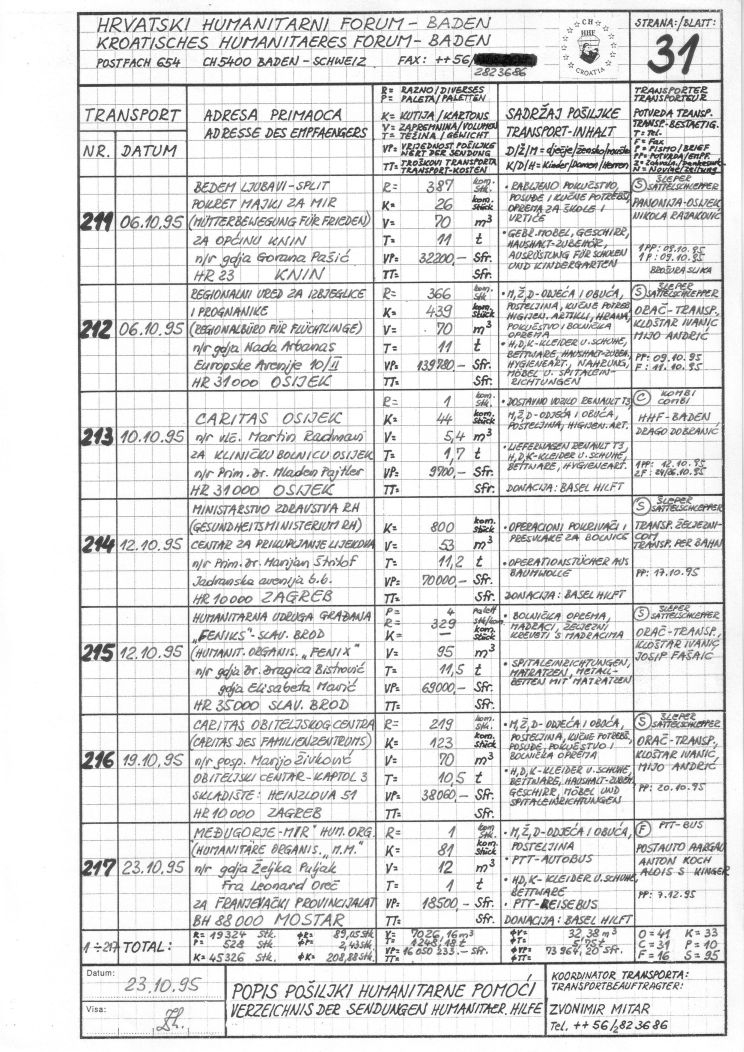 HRVATSKI HUMANITARNI FORUM - BADEN
KROATISCHES HUMANITAERES FORUM - BADEN
POSTFACH 654 CH 5400 BADEN - SCHWEIZ FAX: ++56/
2823686
CH
HHF
CROATIA
STRANA:/BLATT:
31
TRANSPORT
NR. DATUM
ADRESA PRIMAOCA
ADRESSE DES EMPFAENGERS
R= RAZNO/DIVERSES
P= PALETA/PALETTEN
K= KUTIJA/KARTONS
V= ZAPREMNINA/VOLUMEN
T= TEŽINA/GEWICHT
VP= VRIJEDNOST POŠILJKE
WERT DER SENDUNG
TT= TROŠKOVI TRANSPORTA
TRANSPORT-KOSTEN
SADRŽAJ POŠILJKE
TRANSPORT-INHALT
D/Ž/M = dječje/ženska/muška
K/D/H = Kinder/Damen/Herren
TRANSPORTER
TRANSPORTEUR
POTVRDA TRANSP.
TRANSP.-BESTAETIG.
T= Tel.
F= Fax
P= PISMO/BRIEF
PP= POTVRDA/EMPF.
N= Novine/Zeitung
211 06.10.95
BEDEM LJUBAVI-SPLIT
POKRET MAJKI ZA MIR
(MÜTTERBEWEGUNG FÜR FRIEDEN)
ZA OPĆINU KNIN
n/r gdja Gorana Pašić
HR 23 KNIN
R= 387 kom. Stk.
K= 26 kom. Stück
V= 70 m³
T= 11 t
VP= 32200,- Sfr.
TT= Sfr.
• RABLJENO POKUĆSTVO,
POSUDE I KUĆNE POTREBŠ,
OPREMA ZA ŠKOLE I
VRTIĆE
• GEBR. MÖBEL, GESCHIRR,
HAUSHALT-ZUBEHÖR,
AUSRÜSTUNG FÜR SCHULEN
UND KINDERGARTEN
S ŠLEPER
SATTELSCHLEPPER
PANONIJA-OSIJEK,
NIKOLA RAJAKOVIĆ
1PP: 09.10.95
1P: 09.10.95
BROŠURA SLIKA
212 06.10.95
REGIONALNI URED ZA IZBJEGLICE
I PROGNANIKE
(REGIONALBÜRO FÜR FLÜCHTLINGE)
n/r gdja Nada Arbanas
Europske Avenije 10/II
HR 31000 OSIJEK
R= 366 kom. Stk.
K= 439 kom. Stück
V= 70 m³
T= 11 t
VP= 139780,- Sfr.
TT= Sfr.
• M,Ž,D-ODJEĆA I OBUĆA,
POSTELJINA, KUĆNE POTREB.
HIGIJEN. ARTIKLI, HRANA,
POKUĆSTVO I BOLNIČKA
OPREMA
• H,D,K-KLEIDER U. SCHUHE,
BETTWARE, HAUSHALT-ZUBEH.
HYGIENEART., NAHRUNG,
MÖBEL U. SPITALEIN-
RICHTUNGEN
S ŠLEPER
SATTELSCHLEPPER
ORAČ-TRANSP,
KLOŠTAR IVANIĆ
MIJO ANDRIĆ
PP: 09.10.95
F: 11.10.95
213 10.10.95
CARITAS OSIJEK
n/r vlč. Martin Radman
ZA KLINIČKU BOLNICU OSIJEK
n/r Prim. dr. Mladen Pajtler
HR 31000 OSIJEK
R= 1 kom. Stk.
K= 44 kom. Stück
V= 5,4 m³
T= 1,7 t
VP= 9700,- Sfr.
TT= Sfr.
• DOSTAVNO VOZILO RENAULT T3,
M,Ž,D-ODJEĆA I OBUĆA,
POSTELJINA, HIGIJEN. ART.
• LIEFERWAGEN RENAULT T3,
H,D,K-KLEIDER U. SCHUHE,
BETTWARE, HYGIENEART.
DONACIJA: BASEL HILFT
C KOMBI
COMBI
HHF-BADEN
DRAGO DOBRANIĆ
1PP: 12.10.95
2F: 24/26.10.95
214 12.10.95
MINISTARSTVO ZDRAVSTVA RH
(GESUNDHEITSMINISTERIUM RH)
CENTAR ZA PRIKUPLJANJE LIJEKOVA
n/r Prim. dr. Marijan Štrlof
Jadranska avenija b.b.
HR 10000 ZAGREB
K= 800 kom. Stück
V= 53 m³
T= 11,2 t
VP= 70000,- Sfr.
TT= Sfr.
• OPERACIONI POKRIVAČI I
PRESVLAKE ZA BOLNICE
• OPERATIONSTÜCHER AUS
BAUMWOLLE
DONACIJA: BASEL HILFT
S ŠLEPER
SATTELSCHLEPPER
TRANSP. ŽELJEZNI-
COM
TRANSP. PER BAHN
PP: 17.10.95
215 12.10.95
HUMANITARNA UDRUGA GRAĐANA
„FENIKS"- SLAV. BROD
(HUMANIT. ORGANIS. „FENIX")
n/r gdja Dr. Dragica Bistrović
gdja Elisabeta Mavić
HR 35000 SLAV. BROD
P= 4 Palett
R= 329 Stk/kom.
K= — kom. Stück
V= 95 m³
T= 11,5 t
VP= 69000,- Sfr.
TT= Sfr.
• BOLNIČKA OPREMA,
MADRACI, ŽELJEZNI
KREVETI S MADRACIMA
• SPITALEINRICHTUNGEN,
MATRATZEN, METALL-
BETTEN MIT MATRATZEN
S ŠLEPER
SATTELSCHLEPPER
ORAČ-TRANSP.,
KLOŠTAR IVANIĆ
JOSIP FAŠAIĆ
216 19.10.95
CARITAS OBITELJSKOG CENTRA
(CARITAS DES FAMILIENZENTRUMS)
n/r gosp. Marijo Živković
OBITELJSKI CENTAR-KAPTOL 3
SKLADIŠTE: HEINZLOVA 51
HR 10000 ZAGREB
R= 219 kom. Stk.
K= 123 kom. Stück
V= 70 m³
T= 10,5 t
VP= 38060,- Sfr.
TT= Sfr.
• M,Ž,D-ODJEĆA I OBUĆA,
POSTELJINA, KUĆNE POTREBŠ,
POSUDE, POKUĆSTVO I
BOLNIČKA OPREMA
• H,D,K-KLEIDER U. SCHUHE,
BETTWARE, HAUSHALT-ZUBEH.
GESCHIRR, MÖBEL UND
SPITALEINRICHTUNGEN
S ŠLEPER
SATTELSCHLEPPER
ORAČ-TRANSP.,
KLOŠTAR IVANIĆ,
MIJO ANDRIĆ
PP: 20.10.95
217 23.10.95
MEĐUGORJE-MIR" HUM. ORG.
(HUMANITÄRE ORGANIS. „M.M."
n/r gdja Željka Puljak
Fra Leonard Oreč
ZA FRANJEVAČKI PROVINCIJALAT
BH 88000 MOSTAR
R= 1 kom. Stk.
K= 81 kom. Stück
V= 12 m³
T= 1 t
VP= 18500,- Sfr.
TT= Sfr.
• M,Ž,D-ODJEĆA I OBUĆA,
POSTELJINA
• PTT-AUTOBUS
• H,D,K-KLEIDER U. SCHUHE,
BETTWARE
• PTT-REISEBUS
DONACIJA: BASEL HILFT
F PTT-BUS
POSTAUTO AARGAU
ANTON KOCH
ALOIS S KINGER
PP: 7.12.95
1÷217 TOTAL:
R= 19324 Stk. ΦR= 89,05 Stk
P= 528 Stk. ΦP= 2,43 Stk.
K= 45326 Stk. ΦK= 208,88 Stk.
V= 7026,16 m³
T= 1248,18 t
VP= 16 050 233.- Sfr.
TT=
ΦV= 32,38 m³
ΦT= 5,75 t
ΦVP= 73 964,20 Sfr.
ΦTT=
O=41 K=33
C=31 P=10
F=16 S=95
Datum:
23.10.95
Visa:
POPIS POŠILJKI HUMANITARNE POMOĆI
VERZEICHNIS DER SENDUNGEN HUMANITAER. HILFE
KOORDINATOR TRANSPORTA:
TRANSPORTBEAUFTRAGTER:
ZVONIMIR MITAR
Tel. ++ 56/2823686